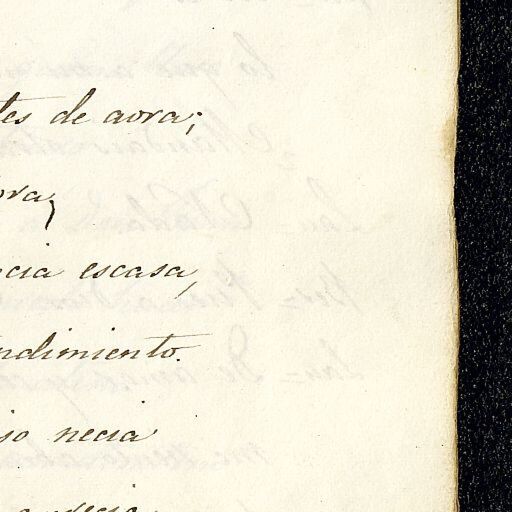 tes de aora;
ora,
cia escasa,
ndimiento.
so necia